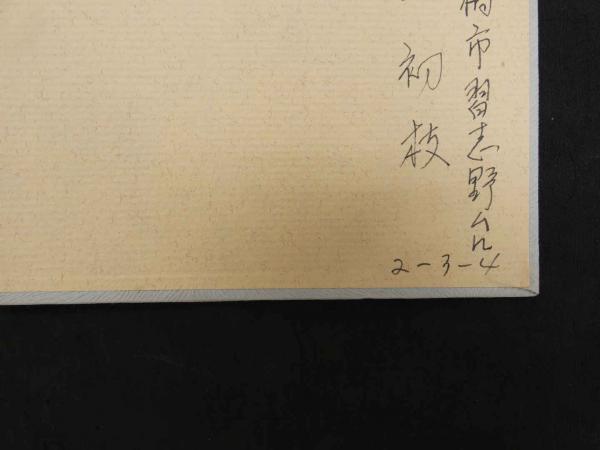 橋市習志野台
2-3-4
初枝